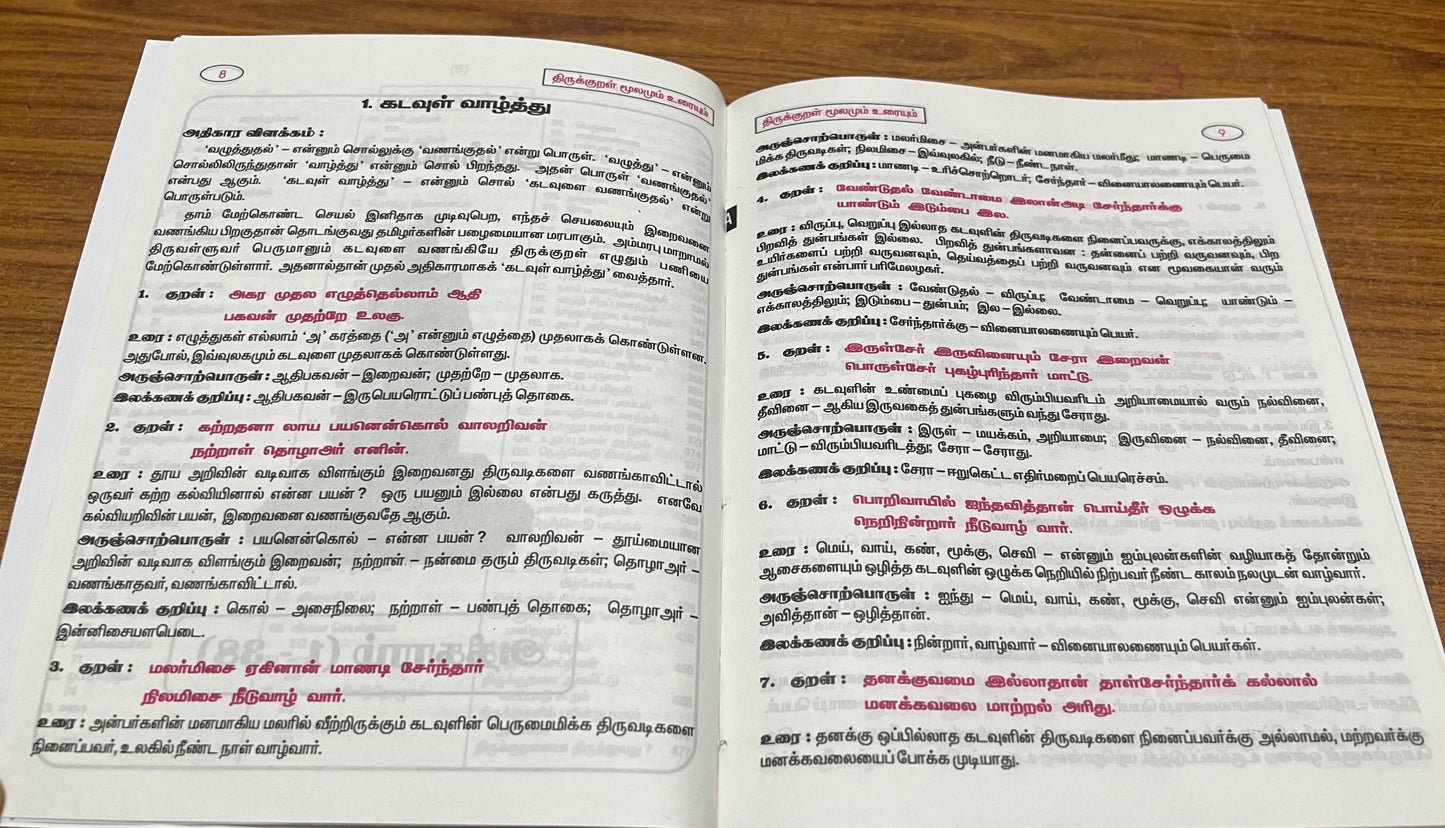 8
திருக்குறள் மூலமும் உரையும்
1. கடவுள் வாழ்த்து
அதிகார விளக்கம் :
'வழுத்துதல்' – என்னும் சொல்லுக்கு 'வணங்குதல்' என்று பொருள். 'வழுத்து' – என்னும்
சொல்லிலிருந்துதான் 'வாழ்த்து' என்னும் சொல் பிறந்தது. அதன் பொருள் 'வணங்குதல்'
என்பது ஆகும். 'கடவுள் வாழ்த்து' – என்னும் சொல் 'கடவுளை வணங்குதல்' என்று
பொருள்படும்.
தாம் மேற்கொண்ட செயல் இனிதாக முடிவுபெற, எந்தச் செயலையும் இறைவனை
வணங்கிய பிறகுதான் தொடங்குவது தமிழர்களின் பழைமையான மரபாகும். அம்மரபு மாறாமல்
திருவள்ளுவர் பெருமானும் கடவுளை வணங்கியே திருக்குறள் எழுதும் பணியை
மேற்கொண்டுள்ளார். அதனால்தான் முதல் அதிகாரமாகக் 'கடவுள் வாழ்த்து' வைத்தார்.
1. குறள் : அகர முதல எழுத்தெல்லாம் ஆதி
பகவன் முதற்றே உலகு.
உரை : எழுத்துகள் எல்லாம் 'அ' கரத்தை ('அ' என்னும் எழுத்தை) முதலாகக் கொண்டுள்ளன.
அதுபோல், இவ்வுலகமும் கடவுளை முதலாகக் கொண்டுள்ளது.
அருஞ்சொற்பொருள் : ஆதிபகவன் – இறைவன்; முதற்றே – முதலாக.
இலக்கணக் குறிப்பு : ஆதிபகவன் – இருபெயரொட்டுப் பண்புத் தொகை.
2. குறள் : கற்றதனா லாய பயனென்கொல் வாலறிவன்
நற்றாள் தொழாஅர் எனின்.
உரை : தூய அறிவின் வடிவாக விளங்கும் இறைவனது திருவடிகளை வணங்காவிட்டால்
ஒருவர் கற்ற கல்வியினால் என்ன பயன் ? ஒரு பயனும் இல்லை என்பது கருத்து. எனவே
கல்வியறிவின் பயன், இறைவனை வணங்குவதே ஆகும்.
அருஞ்சொற்பொருள் : பயனென்கொல் – என்ன பயன் ? வாலறிவன் – தூய்மையான
அறிவின் வடிவாக விளங்கும் இறைவன்; நற்றாள் – நன்மை தரும் திருவடிகள்; தொழாஅர் –
வணங்காதவர், வணங்காவிட்டால்.
இலக்கணக் குறிப்பு : கொல் – அசைநிலை; நற்றாள் – பண்புத் தொகை; தொழாஅர் –
இன்னிசையளபெடை.
3. குறள் : மலர்மிசை ஏகினான் மாணடி சேர்ந்தார்
நிலமிசை நீடுவாழ் வார்.
உரை : அன்பர்களின் மனமாகிய மலரில் வீற்றிருக்கும் கடவுளின் பெருமைமிக்க திருவடிகளை
நினைப்பவர், உலகில் நீண்ட நாள் வாழ்வார்.
திருக்குறள் மூலமும் உரையும்
9
அருஞ்சொற்பொருள் : மலர்மிசை – அன்பர்களின் மனமாகிய மலர்மீது; மாணடி – பெருமை
மிக்க திருவடிகள்; நிலமிசை – இவ்வுலகில்; நீடு – நீண்ட நாள்.
இலக்கணக் குறிப்பு : மாணடி – உரிச்சொற்றொடர்; சேர்ந்தார் – வினையாலணையும் பெயர்.
4. குறள் : வேண்டுதல் வேண்டாமை இலான்அடி சேர்ந்தார்க்கு
யாண்டும் இடும்பை இல.
உரை : விருப்பு, வெறுப்பு இல்லாத கடவுளின் திருவடிகளை நினைப்பவருக்கு, எக்காலத்திலும்
பிறவித் துன்பங்கள் இல்லை. பிறவித் துன்பங்களாவன : தன்னைப் பற்றி வருவனவும், பிற
உயிர்களைப் பற்றி வருவனவும், தெய்வத்தைப் பற்றி வருவனவும் என மூவகையான் வரும்
துன்பங்கள் என்பார் பரிமேலழகர்.
அருஞ்சொற்பொருள் : வேண்டுதல் – விருப்பு; வேண்டாமை – வெறுப்பு; யாண்டும் –
எக்காலத்திலும்; இடும்பை – துன்பம்; இல – இல்லை.
இலக்கணக் குறிப்பு : சேர்ந்தார்க்கு – வினையாலணையும் பெயர்.
5. குறள் : இருள்சேர் இருவினையும் சேரா இறைவன்
பொருள்சேர் புகழ்புரிந்தார் மாட்டு.
உரை : கடவுளின் உண்மைப் புகழை விரும்பியவரிடம் அறியாமையால் வரும் நல்வினை,
தீவினை – ஆகிய இருவகைத் துன்பங்களும் வந்து சேராது.
அருஞ்சொற்பொருள் : இருள் – மயக்கம், அறியாமை; இருவினை – நல்வினை, தீவினை;
மாட்டு – விரும்பியவரிடத்து; சேரா – சேராது.
இலக்கணக் குறிப்பு : சேரா – ஈறுகெட்ட எதிர்மறைப் பெயரெச்சம்.
6. குறள் : பொறிவாயில் ஐந்தவித்தான் பொய்தீர் ஒழுக்க
நெறிநின்றார் நீடுவாழ் வார்.
உரை : மெய், வாய், கண், மூக்கு, செவி – என்னும் ஐம்புலன்களின் வழியாகத் தோன்றும்
ஆசைகளையும் ஒழித்த கடவுளின் ஒழுக்க நெறியில் நிற்பவர் நீண்ட காலம் நலமுடன் வாழ்வார்.
அருஞ்சொற்பொருள் : ஐந்து – மெய், வாய், கண், மூக்கு, செவி என்னும் ஐம்புலன்கள்;
அவித்தான் – ஒழித்தான்.
இலக்கணக் குறிப்பு : நின்றார், வாழ்வார் – வினையாலணையும் பெயர்கள்.
7. குறள் : தனக்குவமை இல்லாதான் தாள்சேர்ந்தார்க் கல்லால்
மனக்கவலை மாற்றல் அரிது.
உரை : தனக்கு ஒப்பில்லாத கடவுளின் திருவடிகளை நினைப்பவர்க்கு அல்லாமல், மற்றவர்க்கு
மனக்கவலையைப் போக்க முடியாது.